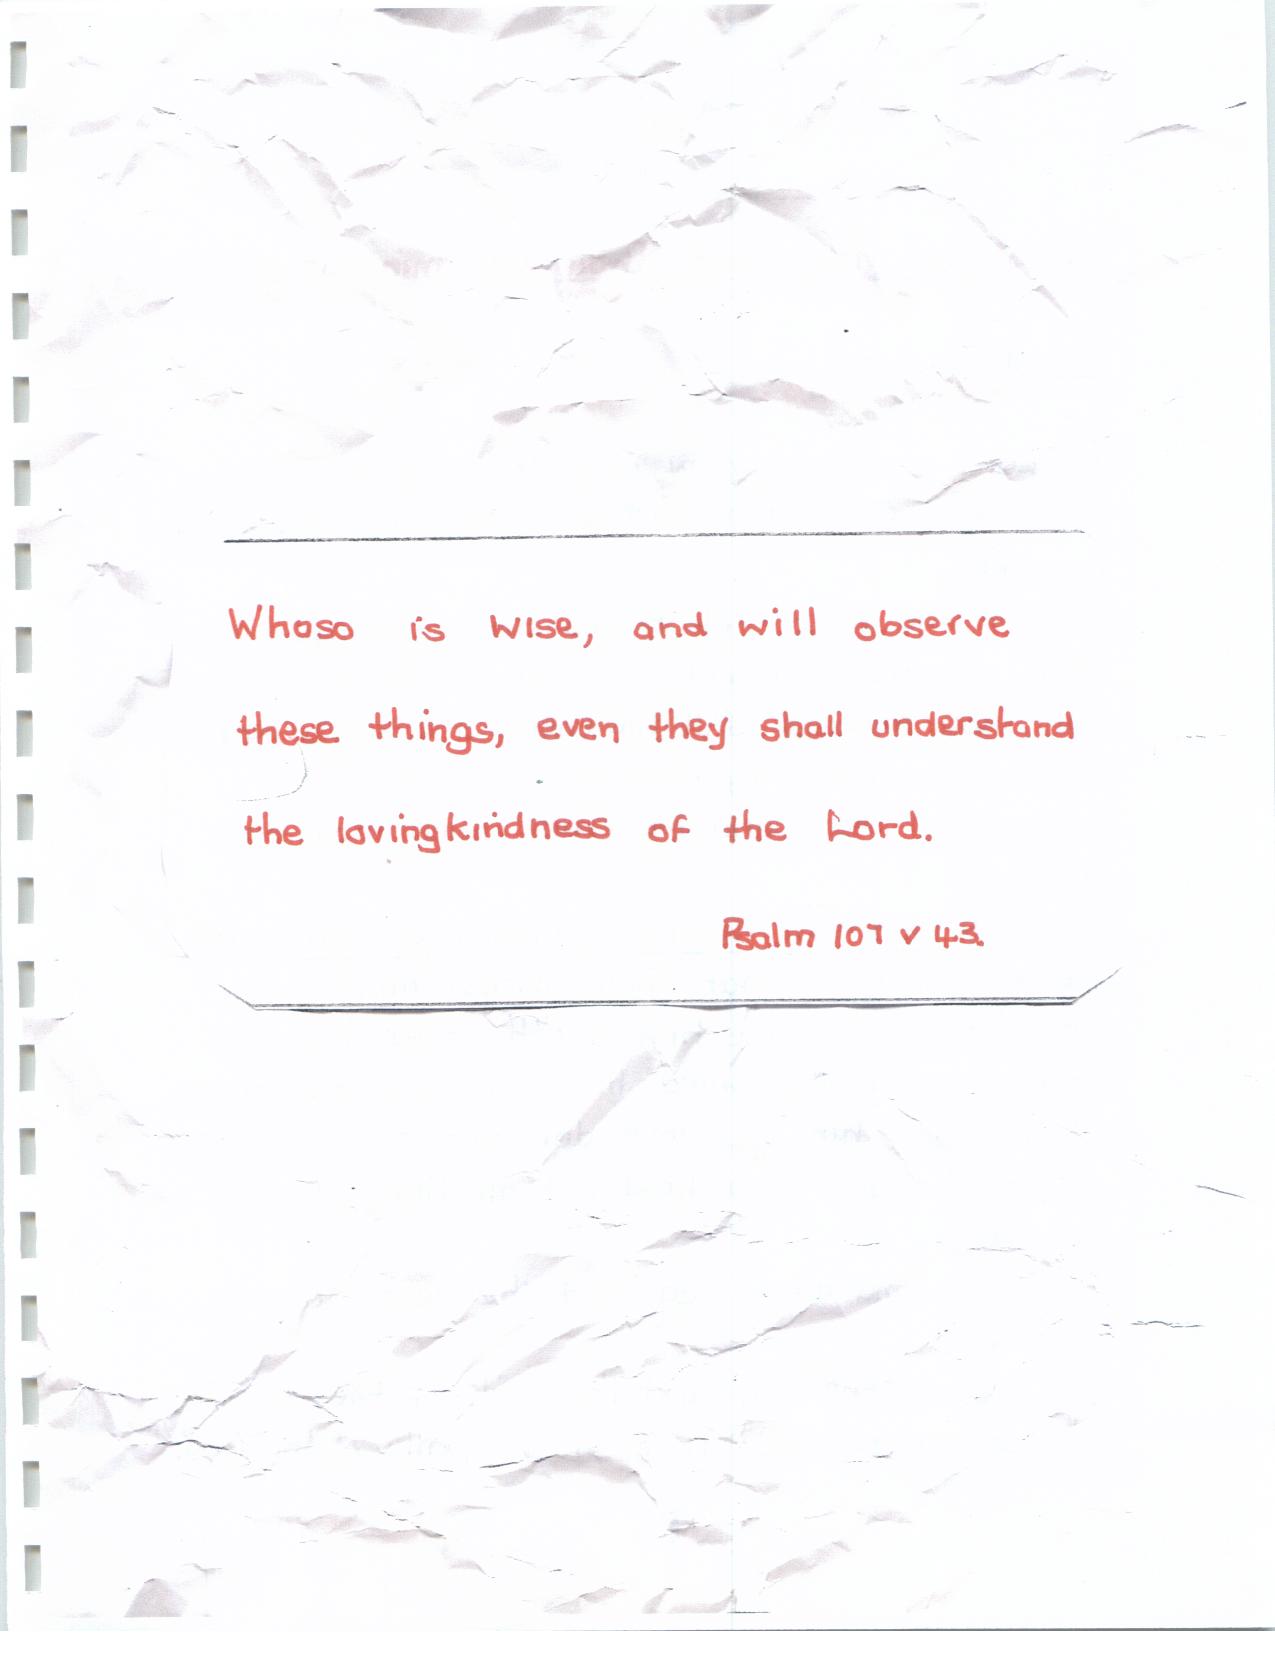 Whoso is wise, and will observe
these things, even they shall understand
the lovingkindness of the Lord.
Psalm 107 v 43.